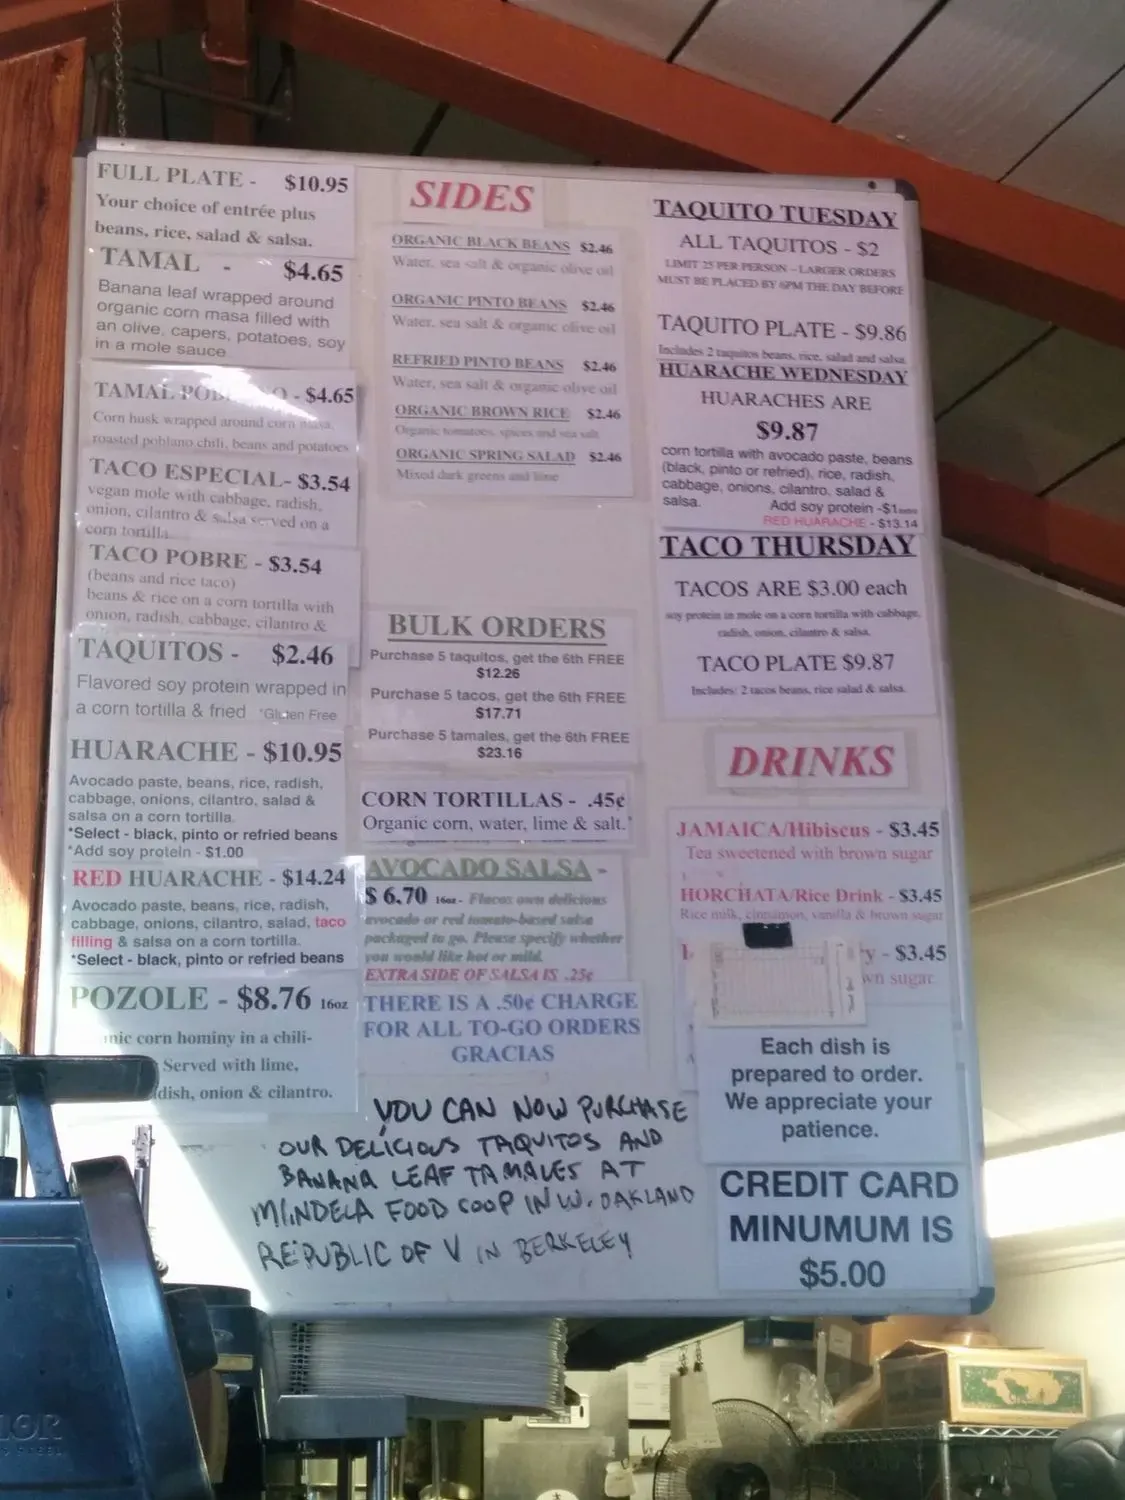 FULL PLATE - $10.95
Your choice of entrée plus
beans, rice, salad & salsa.
TAMAL - $4.65
Banana leaf wrapped around
organic corn masa filled with
an olive, capers, potatoes, soy
in a mole sauce
TAMAL - $4.65
Corn husk wrapped around corn masa,
roasted poblano chili, beans and potatoes
TACO ESPECIAL- $3.54
vegan mole with cabbage, radish,
onion, cilantro & salsa served on a
corn tortilla
TACO POBRE - $3.54
(beans and rice taco)
beans & rice on a corn tortilla with
onion, radish, cabbage, cilantro &
TAQUITOS - $2.46
Flavored soy protein wrapped in
a corn tortilla & fried *Gluten Free
HUARACHE - $10.95
Avocado paste, beans, rice, radish,
cabbage, onions, cilantro, salad &
salsa on a corn tortilla.
*Select - black, pinto or refried beans
*Add soy protein - $1.00
RED HUARACHE - $14.24
Avocado paste, beans, rice, radish,
cabbage, onions, cilantro, salad, taco
filling & salsa on a corn tortilla.
*Select - black, pinto or refried beans
POZOLE - $8.76 16oz
corn hominy in a chili-
Served with lime,
onion & cilantro.
SIDES
ORGANIC BLACK BEANS $2.46
Water, sea salt & organic olive oil
ORGANIC PINTO BEANS $2.46
Water, sea salt & organic olive oil
REFRIED PINTO BEANS $2.46
Water, sea salt & organic olive oil
ORGANIC BROWN RICE $2.46
Organic tomatoes, spices and sea salt
ORGANIC SPRING SALAD $2.46
Mixed dark greens and lime
BULK ORDERS
Purchase 5 taquitos, get the 6th FREE
$12.26
Purchase 5 tacos, get the 6th FREE
$17.71
Purchase 5 tamales, get the 6th FREE
$23.16
CORN TORTILLAS - .45¢
Organic corn, water, lime & salt.
AVOCADO SALSA -
$ 6.70 16oz - Flacos own delicious
avocado or red tomato-based salsa
packaged to go. Please specify whether
you would like hot or mild.
EXTRA SIDE OF SALSA IS .25¢
THERE IS A .50¢ CHARGE
FOR ALL TO-GO ORDERS
GRACIAS
TAQUITO TUESDAY
ALL TAQUITOS - $2
LIMIT 25 PER PERSON - LARGER ORDERS
MUST BE PLACED BY 6PM THE DAY BEFORE
TAQUITO PLATE - $9.86
Includes 2 taquitos beans, rice, salad and salsa
HUARACHE WEDNESDAY
HUARACHES ARE
$9.87
corn tortilla with avocado paste, beans
(black, pinto or refried), rice, radish,
cabbage, onions, cilantro, salad &
salsa. Add soy protein -$1
RED HUARACHE - $13.14
TACO THURSDAY
TACOS ARE $3.00 each
soy protein in mole on a corn tortilla with cabbage,
radish, onion, cilantro & salsa.
TACO PLATE $9.87
Includes: 2 tacos beans, rice salad & salsa.
DRINKS
JAMAICA/Hibiscus - $3.45
Tea sweetened with brown sugar
HORCHATA/Rice Drink - $3.45
Rice milk, cinnamon, vanilla & brown sugar
- $3.45
sugar
Each dish is
prepared to order.
We appreciate your
patience.
CREDIT CARD
MINUMUM IS
$5.00
YOU CAN NOW PURCHASE
OUR DELICIOUS TAQUITOS AND
BANANA LEAF TAMALES AT
MINDELA FOOD COOP IN W. OAKLAND
REPUBLIC OF V IN BERKELEY